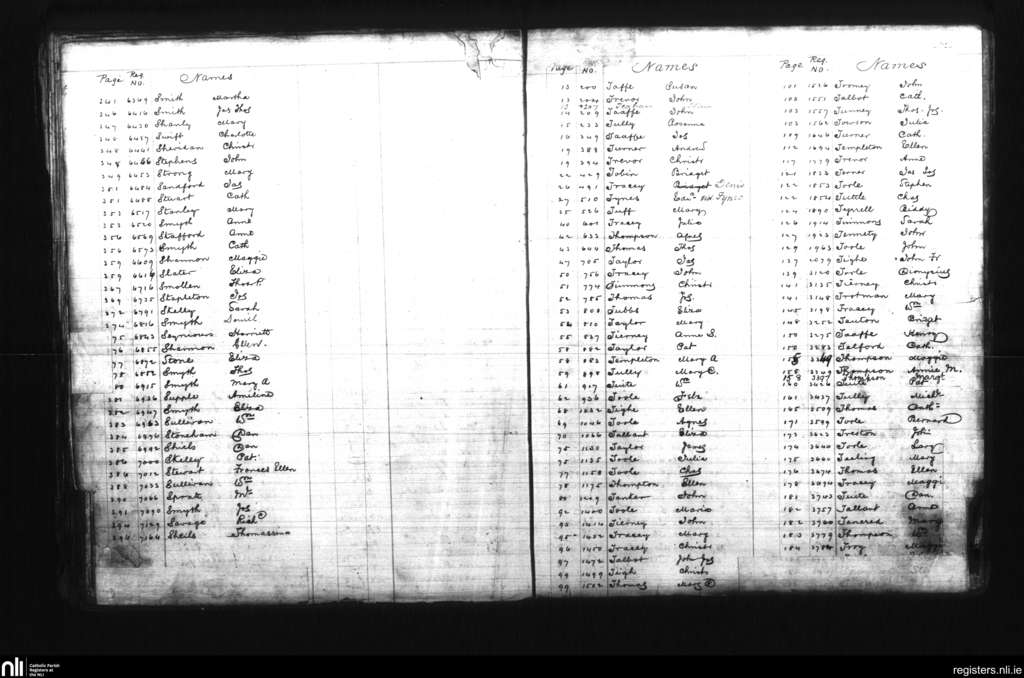 Page Reg. No. Names
241 6349 Smith Martha
246 6416 Smith Jas Thos
247 6430 Shanly Mary
248 6437 Swift Charlotte
248 6461 Sheridan Christr
248 6466 Stephens John
249 6453 Strong Mary
251 6484 Sandford Jas
251 6488 Stewart Cath
253 6517 Stanley Mary
253 6520 Smyth Anne
256 6569 Stafford Anne
256 6573 Smyth Cath
259 6609 Shannon Maggie
259 6614 Slater Eliza
267 6716 Smollen Thos P.
269 6735 Stapleton Jas
272 6791 Skelly Sarah
274 6816 Smyth Daniel
75 6843 Harriett
76 6855 Shannon Ellen
77 6872 Stone Eliza
78 6882 Smyth Thos
80 6915 Smyth Mary A
281 6936 Supple Amelina
282 6947 Smyth Eliza
283 6963 Sullivan Wm
284 6976 Stoneham Dan
285 6992 Shiels Dan
286 7000 Skelley Pat.
286 7012 Stewart Frances Ellen
288 7033 Sullivan Wm
290 7066 Spratt
291 7090 Smyth Jos
294 7129 Savage Rich
296 7166 Shiels Thomasina
Page No. Names
13 200 Taffe Susan
13 204 Trevor John
14 209 Taaffe John
15 233 Tully Rosanna
16 249 Taaffe Jos
19 289 Turner Andrew
19 294 Trevor Christr
22 429 Tobin Bridget
26 491 Tracey Denis
27 510 Tynes
25 526 Tuff Mary
40 601 Tracey Julia
42 633 Thompson Agnes
43 644 Thomas Thos
47 705 Taylor Jas
50 756 Tracey John
51 774 Timmons Christr
52 785 Thomas Js.
53 808 Tubbs Eliza
54 810 Taylor Mary
55 837 Tierney Anne J.
58 882 Taylor Pat
58 883 Templeton Mary A
59 898 Tully Mary C.
61 917 Tuite Wm
62 936 Toole
68 1032 Tighe Ellen
69 1046 Toole Agnes
70 1066 Tallant Eliza
75 1130 Taylor James
75 1135 Toole Julia
77 1158 Toole Chas
78 1175 Thompton Ellen
Tanker John
92 1400 Toole Maria
93 1414 Tierney John
95 1432 Tracey Mary
96 1450 Tracey Christr
97 1472 Talbot Joh Jos
99 1499 Tigh Christr
99 1502 Thomas Mary
Page Reg. No. Names
101 1526 Toomey John
103 1551 Talbot Cath.
103 1557 Tunney Thos. Jos.
103 1562 Towson Julia
109 1646 Turner Cath.
112 1694 Templeton Ellen
117 1779 Trenor Anne
121 1833 Torner Jas Jos
122 1853 Toole Stephen
122 1856 Tuttle Chas
124 1890 Teprell Biddy
126 1914 Timmons Sarah
127 1923 Tennety John
129 1963 Toole John
137 2079 Tighe John Fr
139 3120 Toole Dionysius
141 3135 Tierney Christr
141 3148 Trotman Mary
145 3198 Tracey Wm
148 3252 Tauton Bridget
150 3275 Taaffe Henry
150 3283 Telford Cath.
158 3349 Thompson Maggie
158 3349 Thompson Annie M.
158 3397 Thompson Margt
160 3426 Tuite Pat
161 3437 Tully Michl
165 3509 Thomas Cath.
171 3599 Toole Bernard
173 3623 Treston John
174 3640 Toole Lacy
175 3660 Teeling Mary
176 3674 Thomas Ellen
178 3694 Tracey Maggi
181 3743 Tuite Dan
182 3757 Tallant Anne
182 3760 Tancred Mary
183 3779 Thompson Wm
184 3786 Troy Maggie
nli
Catholic Parish
Registers at
the NLI
registers.nli.ie